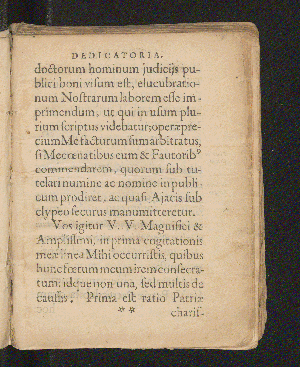 DEDICATORIA.
doctorum hominum judicijs pu-
blici boni visum est, elucubratio-
num Nostrarum laborem esse im-
primendum, ut qui in usum plu-
rium scriptus videbatur; operæpre-
cium Me facturum sum arbitratus,
si Mœcenatibus eum & Fautoribꝰ
commendarem, quorum sub tu-
telari numine ac nomine in publi-
cum prodiret, ac quasi Ajacis sub
clypeo securus manumitteretur.
Vos igitur V. V. Magnifici &
Amplissimi, in prima cogitationis
meæ linea Mihi occurristis, quibus
hunc fœtum meum irem consecra-
tum: idque non una, sed multis de
causis. Prima est ratio Patriæ
* *
charis-